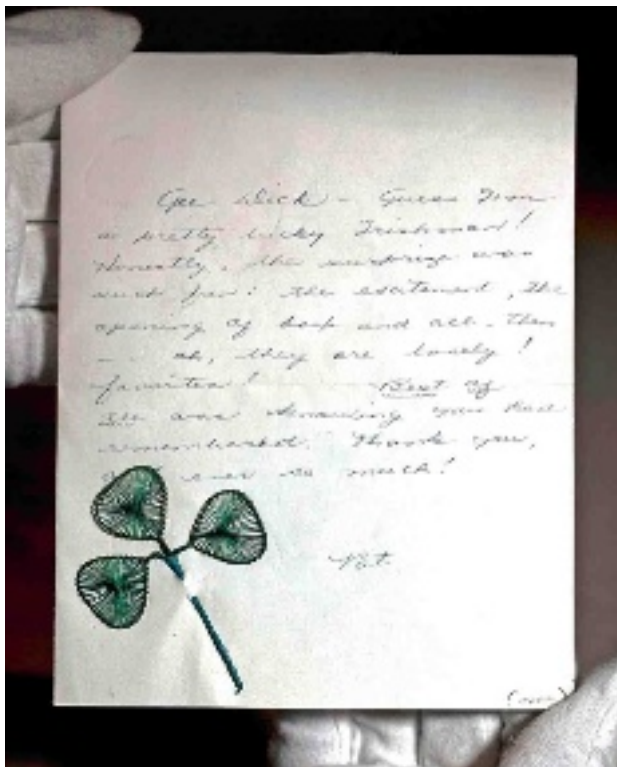 Gee Dick – Guess I'm
a pretty lucky Irishman!
Honestly, the surprise was
such fun: the excitement, the
opening of box and all. Then
-- oh, they are lovely!
favorites! Best of
all was knowing you had
remembered. Thank you,
ever so much!
Pat
(over)